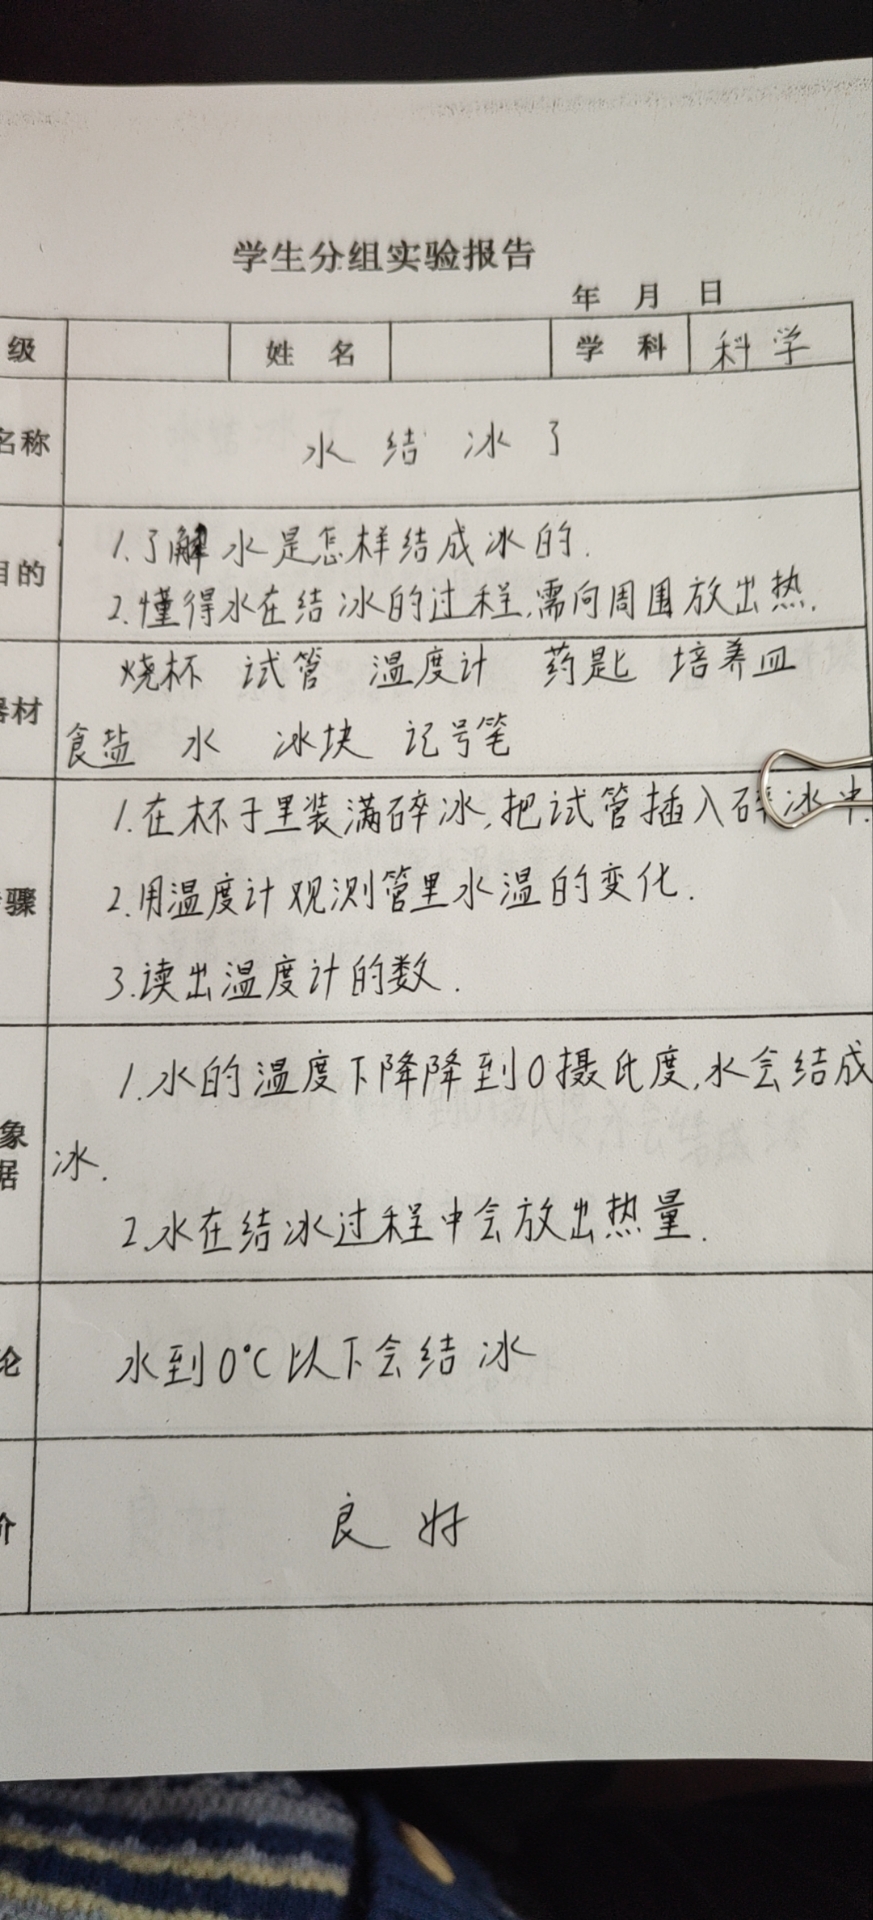 学生分组实验报告
年 月 日
级 姓 名 学 科 科学
名称 水结冰了
目的 1.了解水是怎样结成冰的.
2.懂得水在结冰的过程,需向周围放出热.
器材 烧杯 试管 温度计 药匙 培养皿
食盐 水 冰块 记号笔
骤 1.在杯子里装满碎冰,把试管插入碎冰中.
2.用温度计观测管里水温的变化.
3.读出温度计的数.
象
据
1.水的温度下降降到0摄氏度,水会结成
冰.
2.水在结冰过程中会放出热量.
论 水到0℃以下会结冰
价 良好